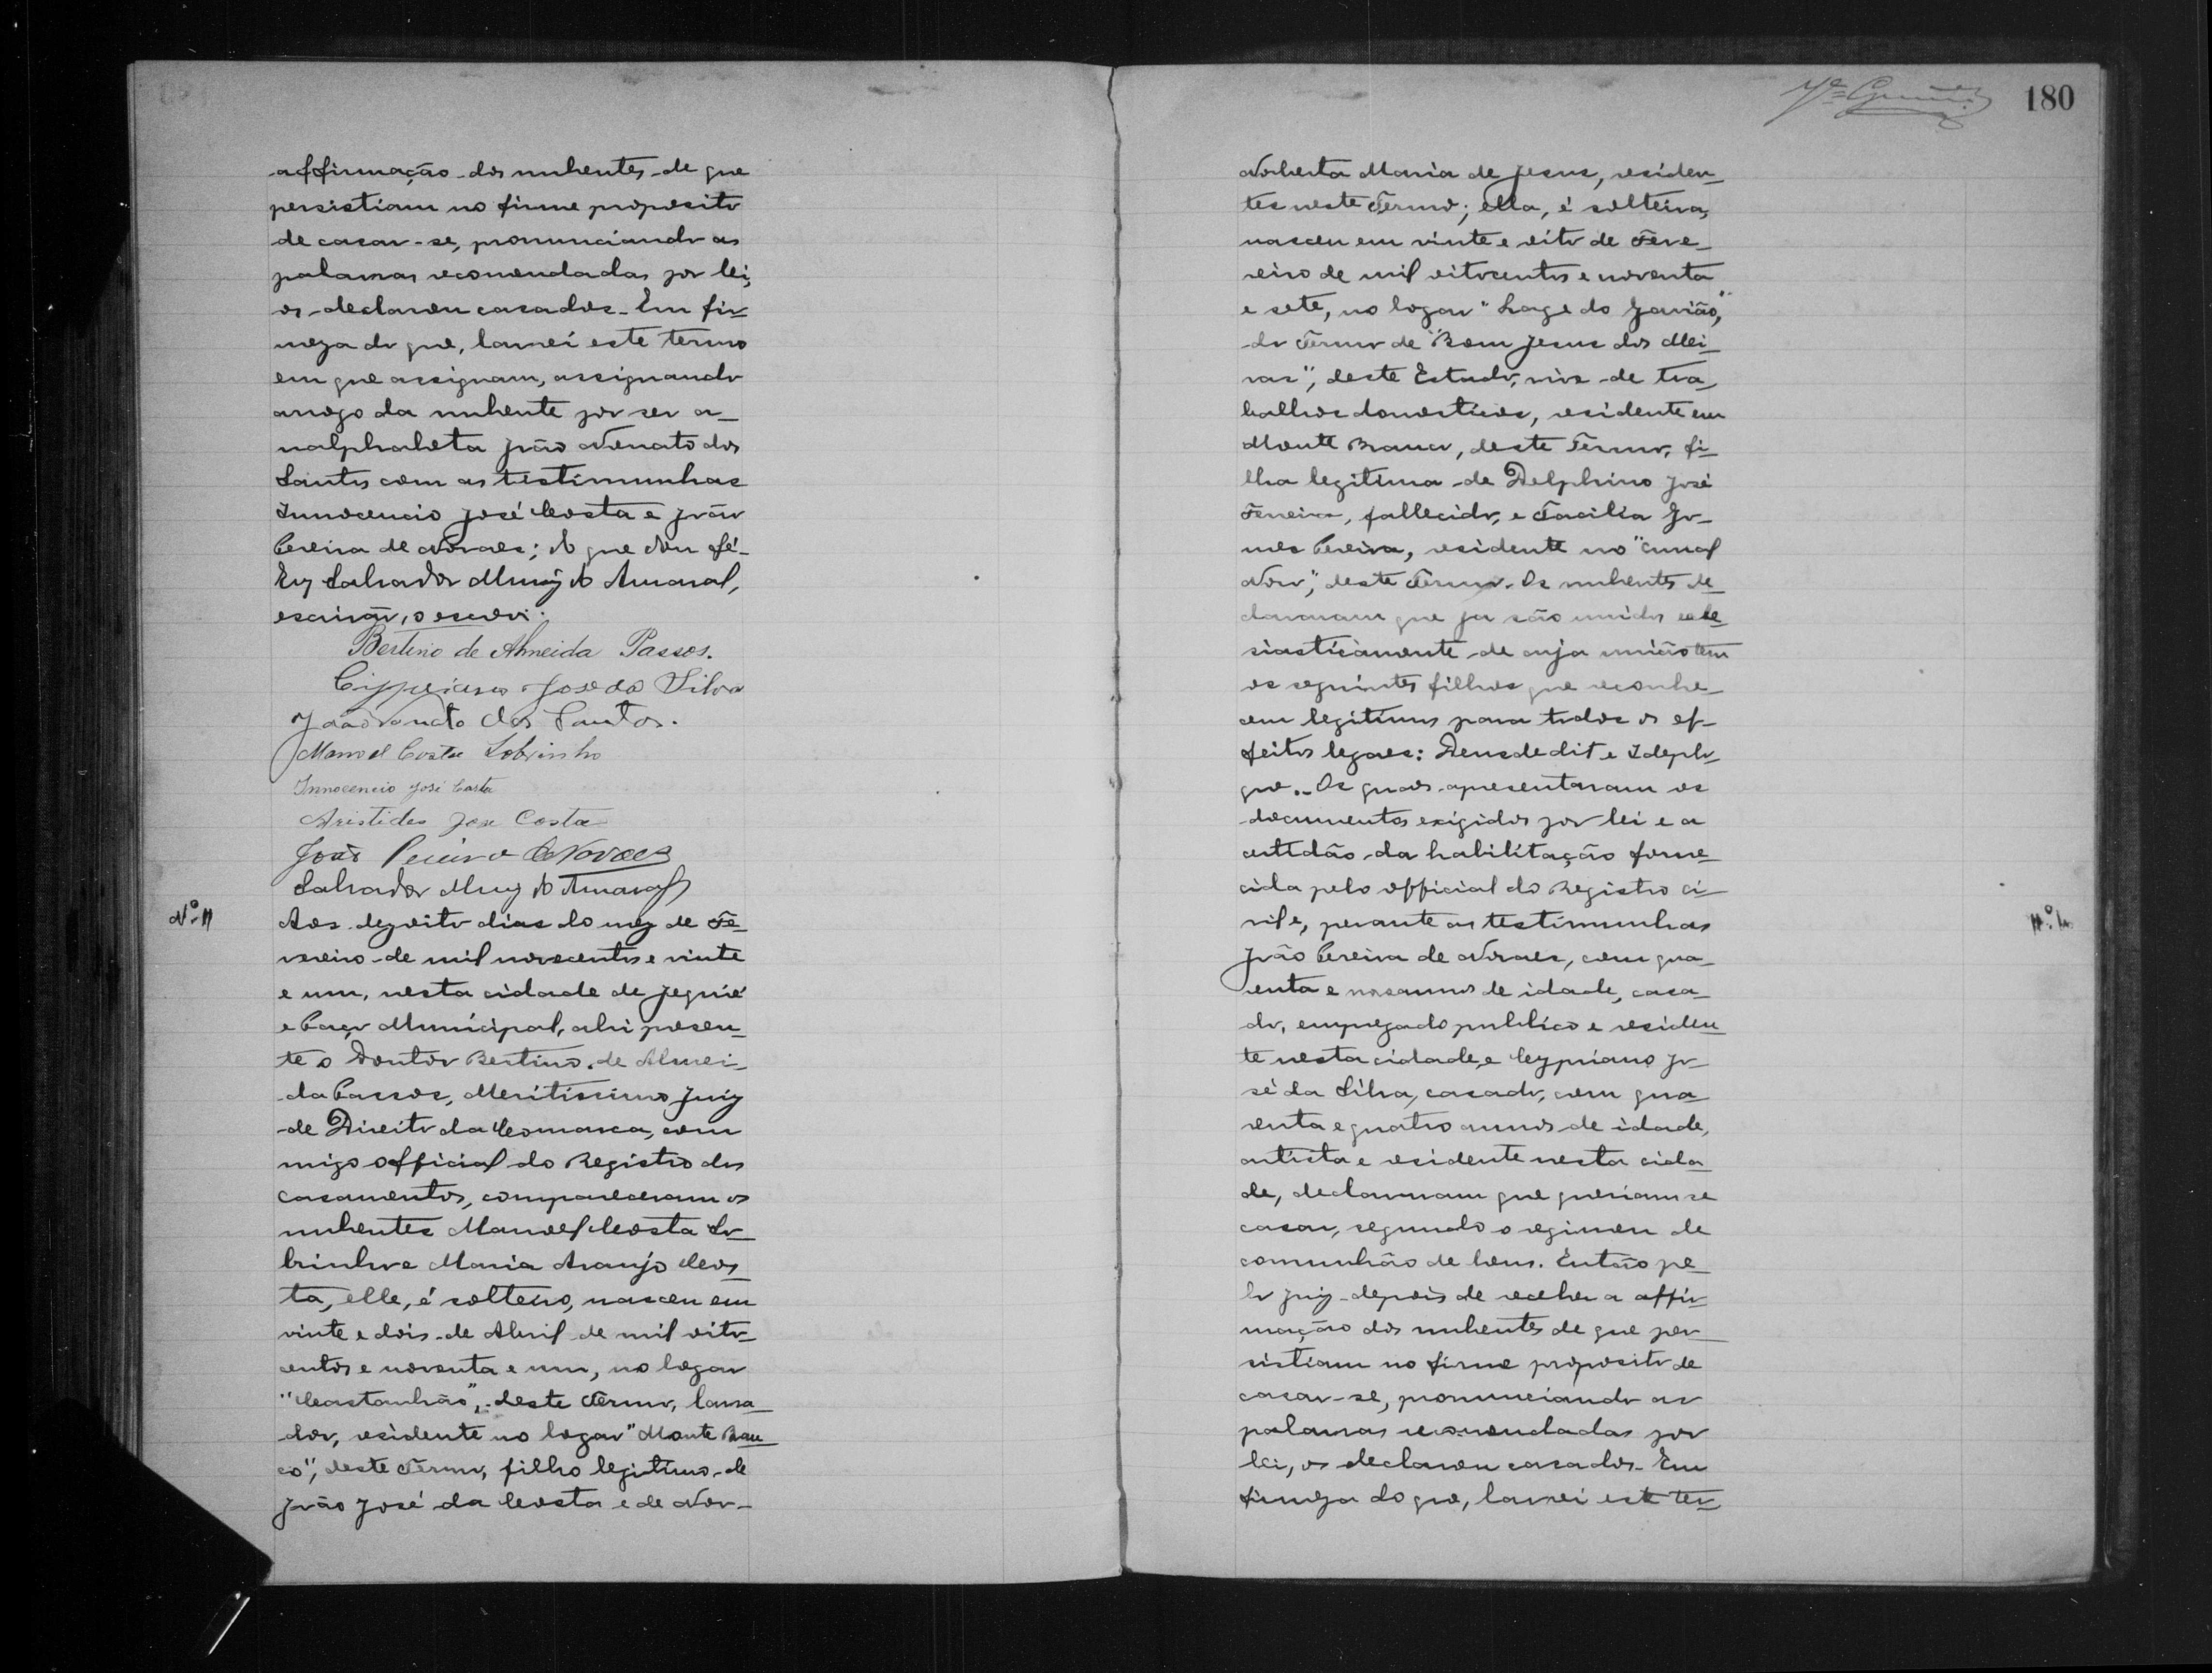 affirmação dos nubentes de que
persistiam no firme proposito
de casar-se, pronunciando as
palavras recomendadas por lei,
os declarou casados. Em fir-
meza do que, lavrei este termo
em que assignam, assignando
arogo da nubente por ser a-
nalphabeta João Nonato dos
Santos com as testimunhas
Innocencio José Costa e João
Pereira de Novaes; do que dou fé.
Eu Salvador Muniz do Amaral,
escrivão, o escrevi.
Bertino de Almeida Passos.
Cyppriano José da Silva
João Nonato dos Santos.
Manoel Costa Sobrinho
Innocencio José Costa
Aristides Jose Costa
João Pereira de Novaes
Salvador Muniz do Amaral
Nº 11
Aos dezoito dias do mez de Fe-
vereiro de mil novecentos e vinte
e um, nesta cidade de Jequié
e Paço Municipal, ahi presen-
te o Doutor Bertino de Almei-
da Passos, Meritissimo Juiz
de Direito da Comarca, com
migo official do Registro dos
casamentos, compareceram os
nubentes Manoel Costa So-
brinho e Maria Araujo Cos-
ta, elle, é solteiro, nasceu em
vinte e dois de Abril de mil oito-
centos e noventa e um, no logar
"Castanhão", deste Termo, lavra-
dor, residente no logar "Monte Bran-
co", deste Termo, filho legitimo de
João José da Costa e de Nor-
180
Norberta Maria de Jesus, residen-
tes neste Termo; ella, é solteira,
nasceu em vinte e oito de Feve-
reiro de mil oitocentos e noventa
e sete, no logar "Lage do Gavião",
do Termo de "Bom Jesus dos Mei-
ras", deste Estado, vive de tra-
balhos domesticos, residente em
Monte Branco, deste Termo, fi-
lha legitima de Delphino José
Ferreira, fallecido, e Tacilia Go-
mes Pereira, residente no "Curral
Novo", deste Termo. Os nubentes de-
clararam que ja são unidos ecle-
siasticamente de cuja união tem
os seguintes filhos que reconhe-
cem legitimos para todos os ef-
feitos legaes: Deusdedit e Idepho-
go. Os quaes apresentaram os
documentos exigidos por lei e a
certidão da habilitação forne-
cida pelo official do Registro ci-
vil e, perante as testimunhas
João Pereira de Novaes, com qua-
renta e nove annos de idade, casa-
do, empregado publico e residen-
te nesta cidade, e Cypriano Jo-
sé da Silva, casado, com qua-
renta e quatro annos de idade,
artista e residente nesta cida-
de, declararam que queriam se
casar, segundo o regimen de
comunhão de bens. Então pe-
lo Juiz depois de receber a affir-
mação dos nubentes de que per-
sistiam no firme proposito de
casar-se, pronunciando as
palavras recomendadas por
lei, os declarou casados. Em
firmeza do que, lavrei este ter-